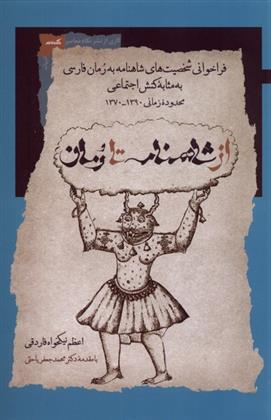 فراخوانی شخصیت‌های شاهنامه به رُمان فارسی
به مثابهٔ کنش اجتماعی
محدودهٔ زمانی ۱۳۹۰-۱۳۷۰
از شاهنامه تا رُمان
اعظم نیکخواه فاردقی
با مقدمهٔ دکتر محمدجعفر یاحقی